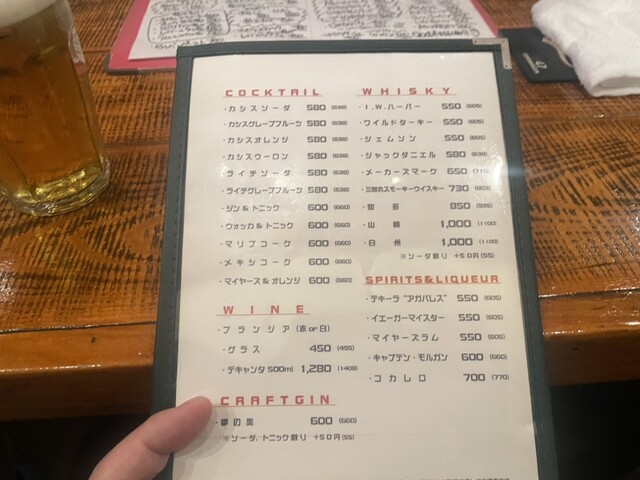 COCKTAIL
・カシスソーダ 580 (638)
・カシスグレープフルーツ 580 (638)
・カシスオレンジ 580 (638)
・カシスウーロン 580 (638)
・ライチソーダ 580 (638)
・ライチグレープフルーツ 580 (638)
・ジン&トニック 600 (660)
・ウォッカ&トニック 600 (660)
・マリブコーク 600 (660)
・メキシコーク 600 (660)
・マイヤーズ&オレンジ 600 (660)
WINE
・フランジア (赤or白)
・グラス 450 (495)
・デキャンタ 500ml 1,280 (1408)
CRAFTGIN
・夢の美 600 (660)
※ソーダ、トニック割り +50円(55)
WHISKY
・I.W.ハーパー 550 (605)
・ワイルドターキー 550 (605)
・ジェムソン 550 (605)
・ジャックダニエル 580 (638)
・メーカーズマーク 650 (715)
・三郎丸スモーキーウイスキー 730 (803)
・知多 850 (935)
・山崎 1,000 (1100)
・白州 1,000 (1100)
※ソーダ割り +50円(55)
SPIRITS&LIQUEUR
・テキーラ "アガバレス" 550 (605)
・イエーガーマイスター 550 (605)
・マイヤーズラム 550 (605)
・キャプテン・モルガン 600 (660)
・コカレロ 700 (770)